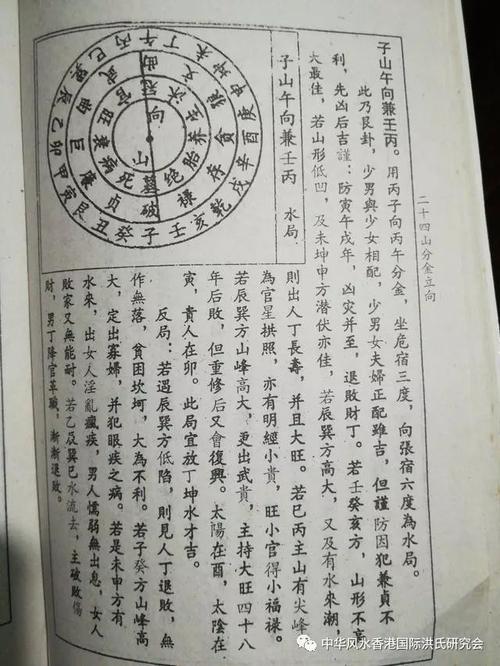 二十四山分金立向
子山午向兼壬丙。用丙子向丙午分金，坐危宿三度，向張宿六度為水局。
此乃艮卦，少男與少女相配，少男女夫婦正配雖吉，但謹防因犯兼貞不
利，先凶后吉謹：防寅午戌年，凶灾并至，退敗財丁。若壬癸亥方，山形不高
大最佳，若山形低凹，及未坤申方潜伏亦佳，若辰巽方高大，又及有水來潮
子山午向兼壬丙 水局
午丁未坤申庚酉辛戌乾亥壬子癸丑艮寅甲卯乙辰巽巳丙
曲文狼貪存祿破貞廉巨曲武
冠沐生养胎绝墓死病衰旺官
向
山
則出人丁長壽，并且大旺。若巳丙主山有尖峰
為官星拱照，亦有明經小貴，旺小官得小福祿。
若辰巽方山峰高大，更出武貴，主持大旺四十八
年后敗，但重修后又會復興。太陽在酉，太陰在
寅，貴人在卯。此局宜放丁坤水才吉。
反局：若遇辰巽方低陷，則見人丁退敗，無
作無落，貧困坎坷，大為不利。若子癸方山峰高
大，定出寡婦，并犯眼疾之病。若是未申方有
水來，出女人淫亂瘋疾，男人懦弱無出息，女人
敗家又無能耐。若乙及巽巳水流去，主破敗傷
財，男丁降官革職，漸漸退敗。
中华风水香港国际洪氏研究会